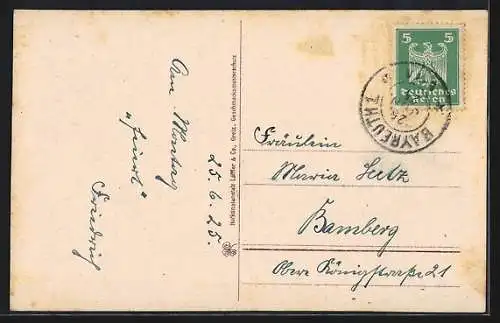 Am Montag
"feiert"
Friedrich
25.6.25.
Löffler & Co., Greiz.
Fräulein
Maria Seitz
Bamberg
Obere Königstraße 21
5 5
Deutsches
Reich
BAYREUTH 1